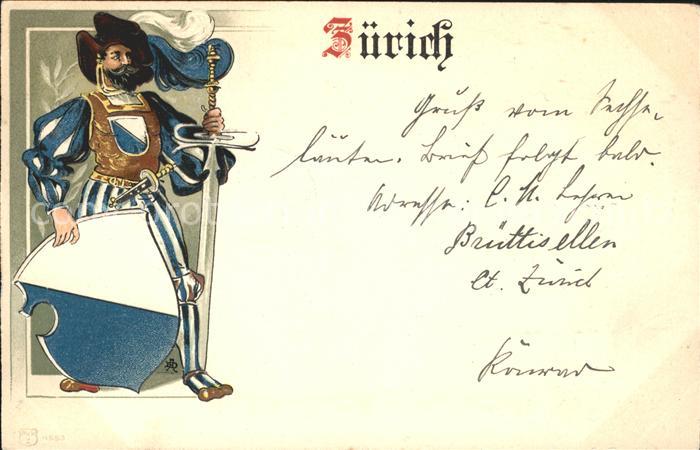 Zürich
Gruß vom Sechse-
läuten. Brief folgt bald.
Adresse: C. H. Lehrer
Brüttisellen
Ct. Zürich
Konrad